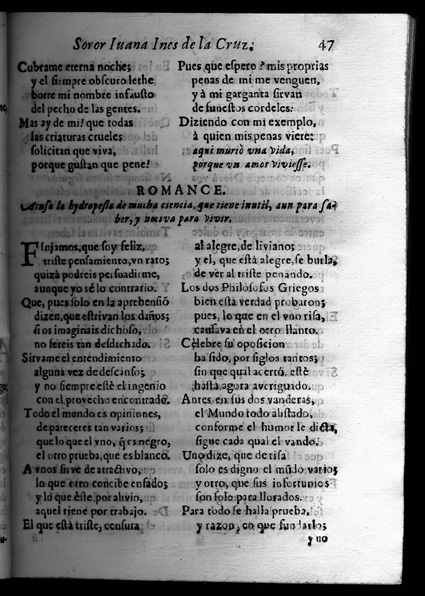 Soror Iuana Ines de la Cruz. 47
Cubrame eterna noche;
y el siempre obscuro lethe
borre mi nombre infausto
del pecho de las gentes.
Mas ay de mi! que todas
las criaturas crueles
solicitan que viva,
porque gustan que pene!
Pues que espero? mis proprias
penas de mi me venguen,
y à mi garganta sirvan
de funestos cordeles.
Diziendo con mi exemplo,
à quien mis penas viere:
aqui muriò vna vida,
porque vn amor viviesse.
ROMANCE.
Acusa la hydropesia de mucha ciencia, que tiene inutil, aun para sa-
ber, y nociva para vivir.
FInjamos, que soy feliz,
triste pensamiento, vn rato;
quizà podreis persuadirme,
aunque yo sè lo contrario.
Que, pues solo en la aprehensiõ
dizen, que estrivan los daños;
si os imaginais dichoso,
no sereis tan desdichado.
Sirvame el entendimiento
alguna vez de descanso;
y no siempre estè el ingenio
con el provecho encontrado.
Todo el mundo es opiniones,
de pareceres tan varios;
que lo que el vno, q̃ es negro,
el otro prueba, que es blanco.
A vnos sirve de atractivo,
lo que otro concibe enfado;
y lo que èste por alivio,
aquel tiene por trabajo.
El que està triste, censura
al alegre, de liviano;
y el, que està alegre, se burla,
de ver al triste penando.
Los dos Philosofos Griegos
bien està verdad probaron;
pues, lo que en el vno risa,
causava en el otro llanto.
Cèlebre su oposicion
ha sido, por siglos tantos;
sin que qual acertò, estè
hasta agora averiguado.
Antes en sus dos vanderas,
el Mundo todo alistado,
conforme el humor le dicta,
sigue cada qual el vando.
Uno dize, que de risa
solo es digno el mũdo vario;
y otro, que sus infortunios
son solo para llorados.
Para todo se halla prueba,
y razon, en que fundarlo;
y no